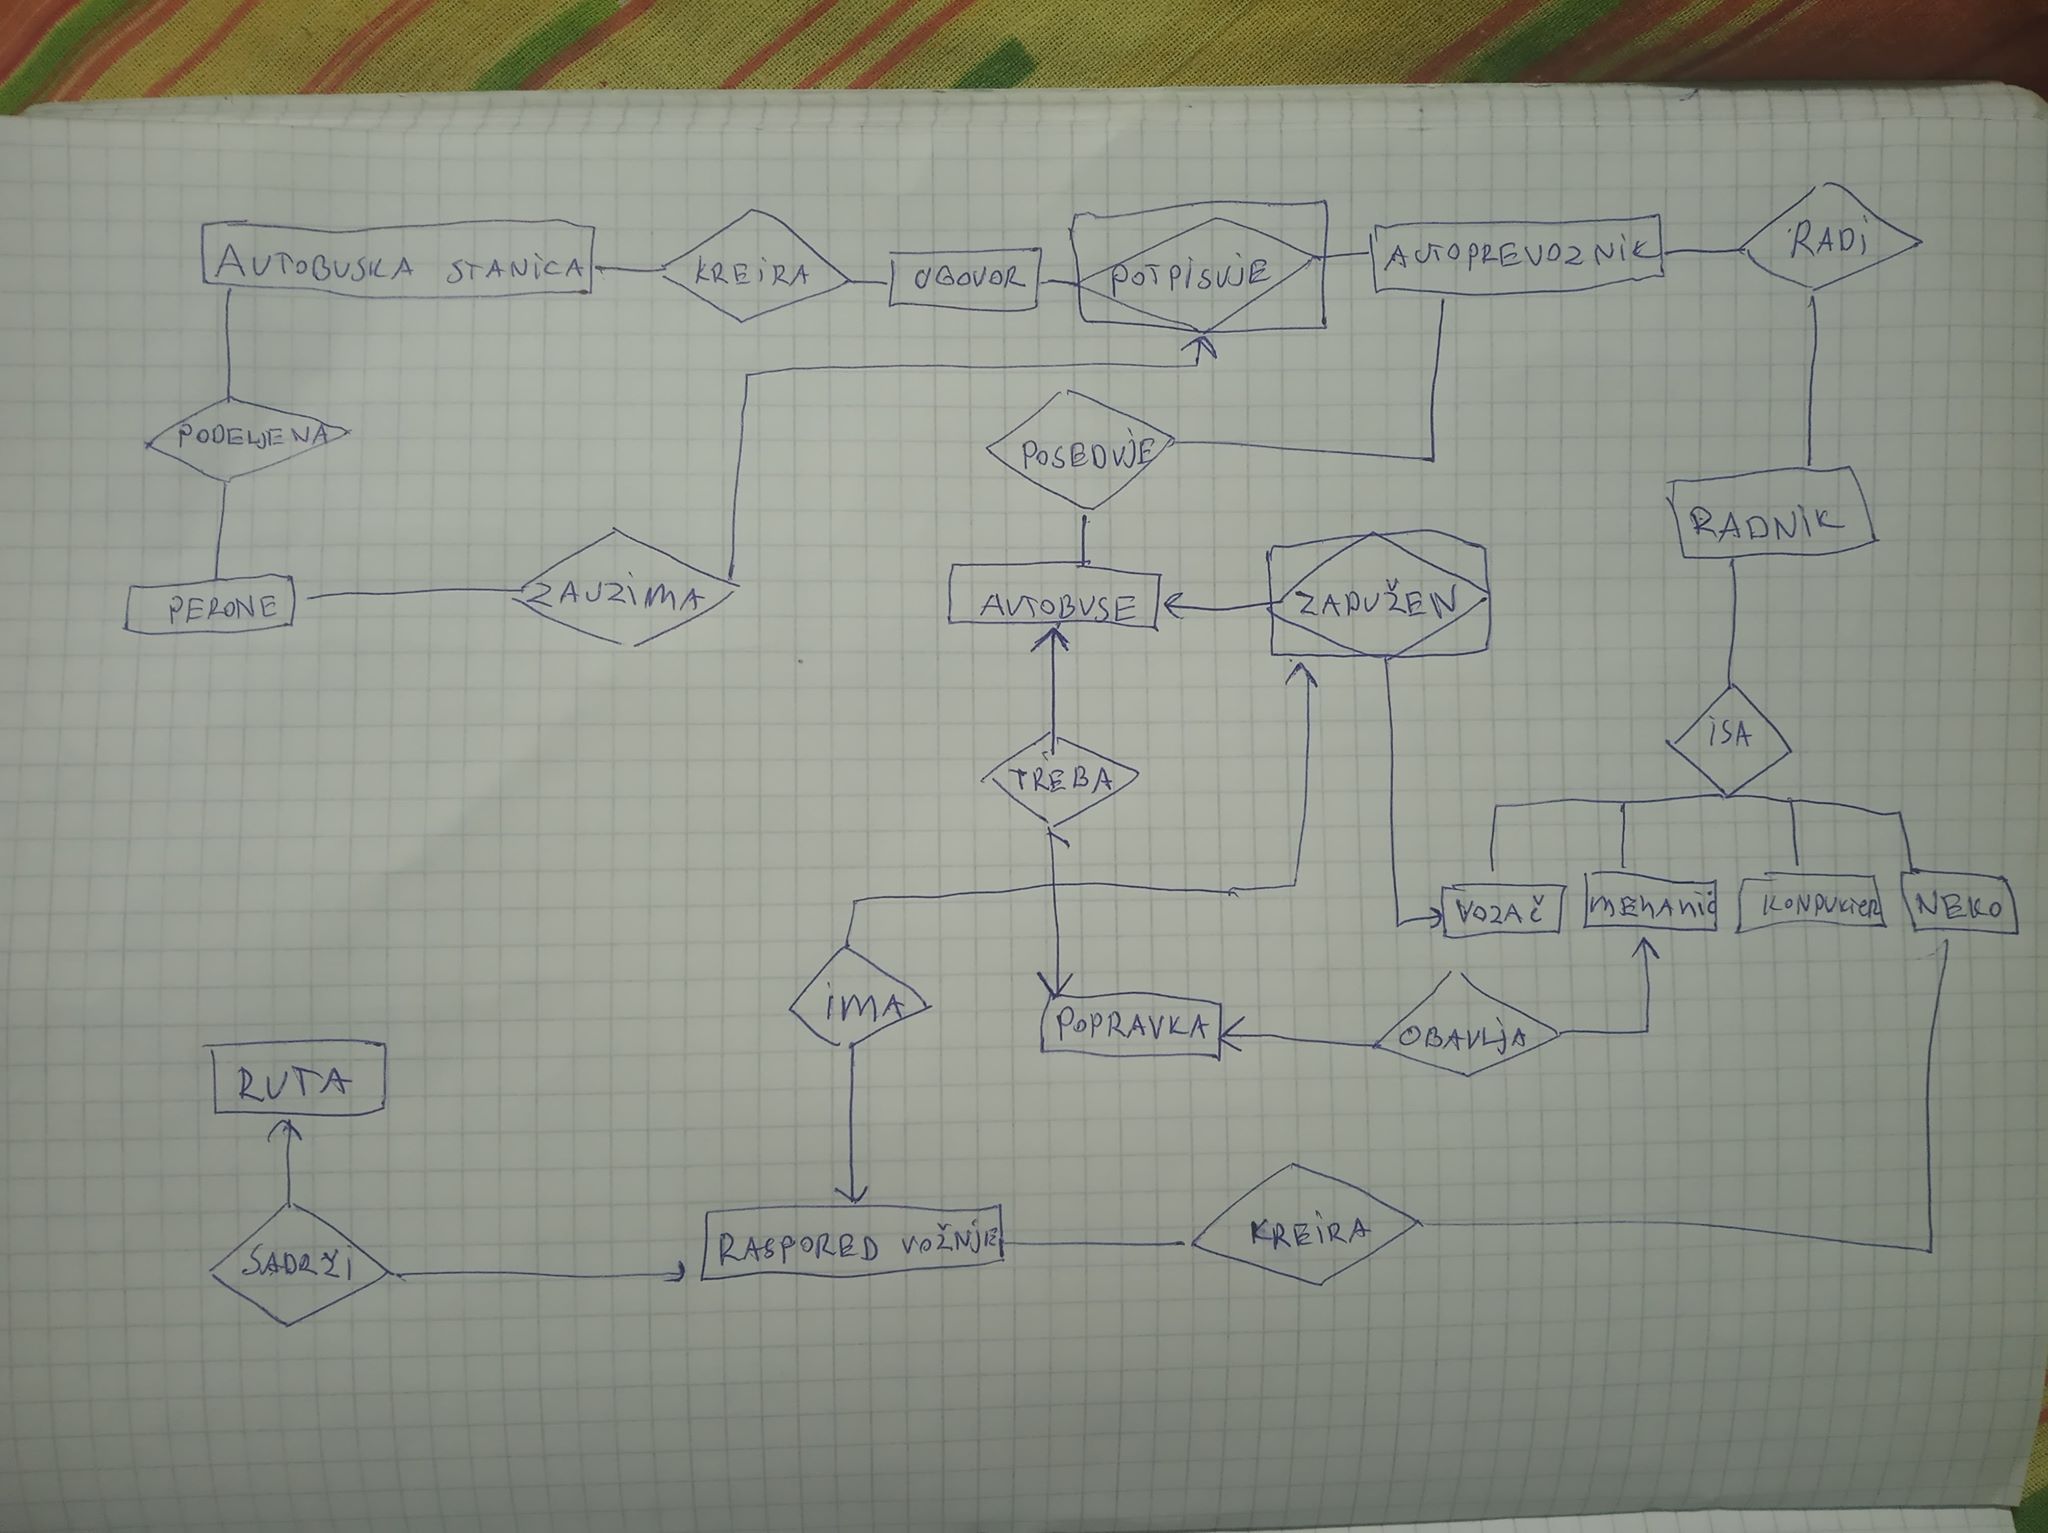 AUTOBUSKA STANICA
KREIRA
UGOVOR
POTPISUJE
AUTOPREVOZNIK
RADI
PODELJENA
POSEDUJE
RADNIK
PERONE
ZAUZIMA
AUTOBUSE
ZADUŽEN
ISA
TREBA
VOZAČ
MEHANIČ
KONDUKTER
NEKO
IMA
POPRAVKA
OBAVLJA
RUTA
SADRŽI
RASPORED VOŽNJE
KREIRA